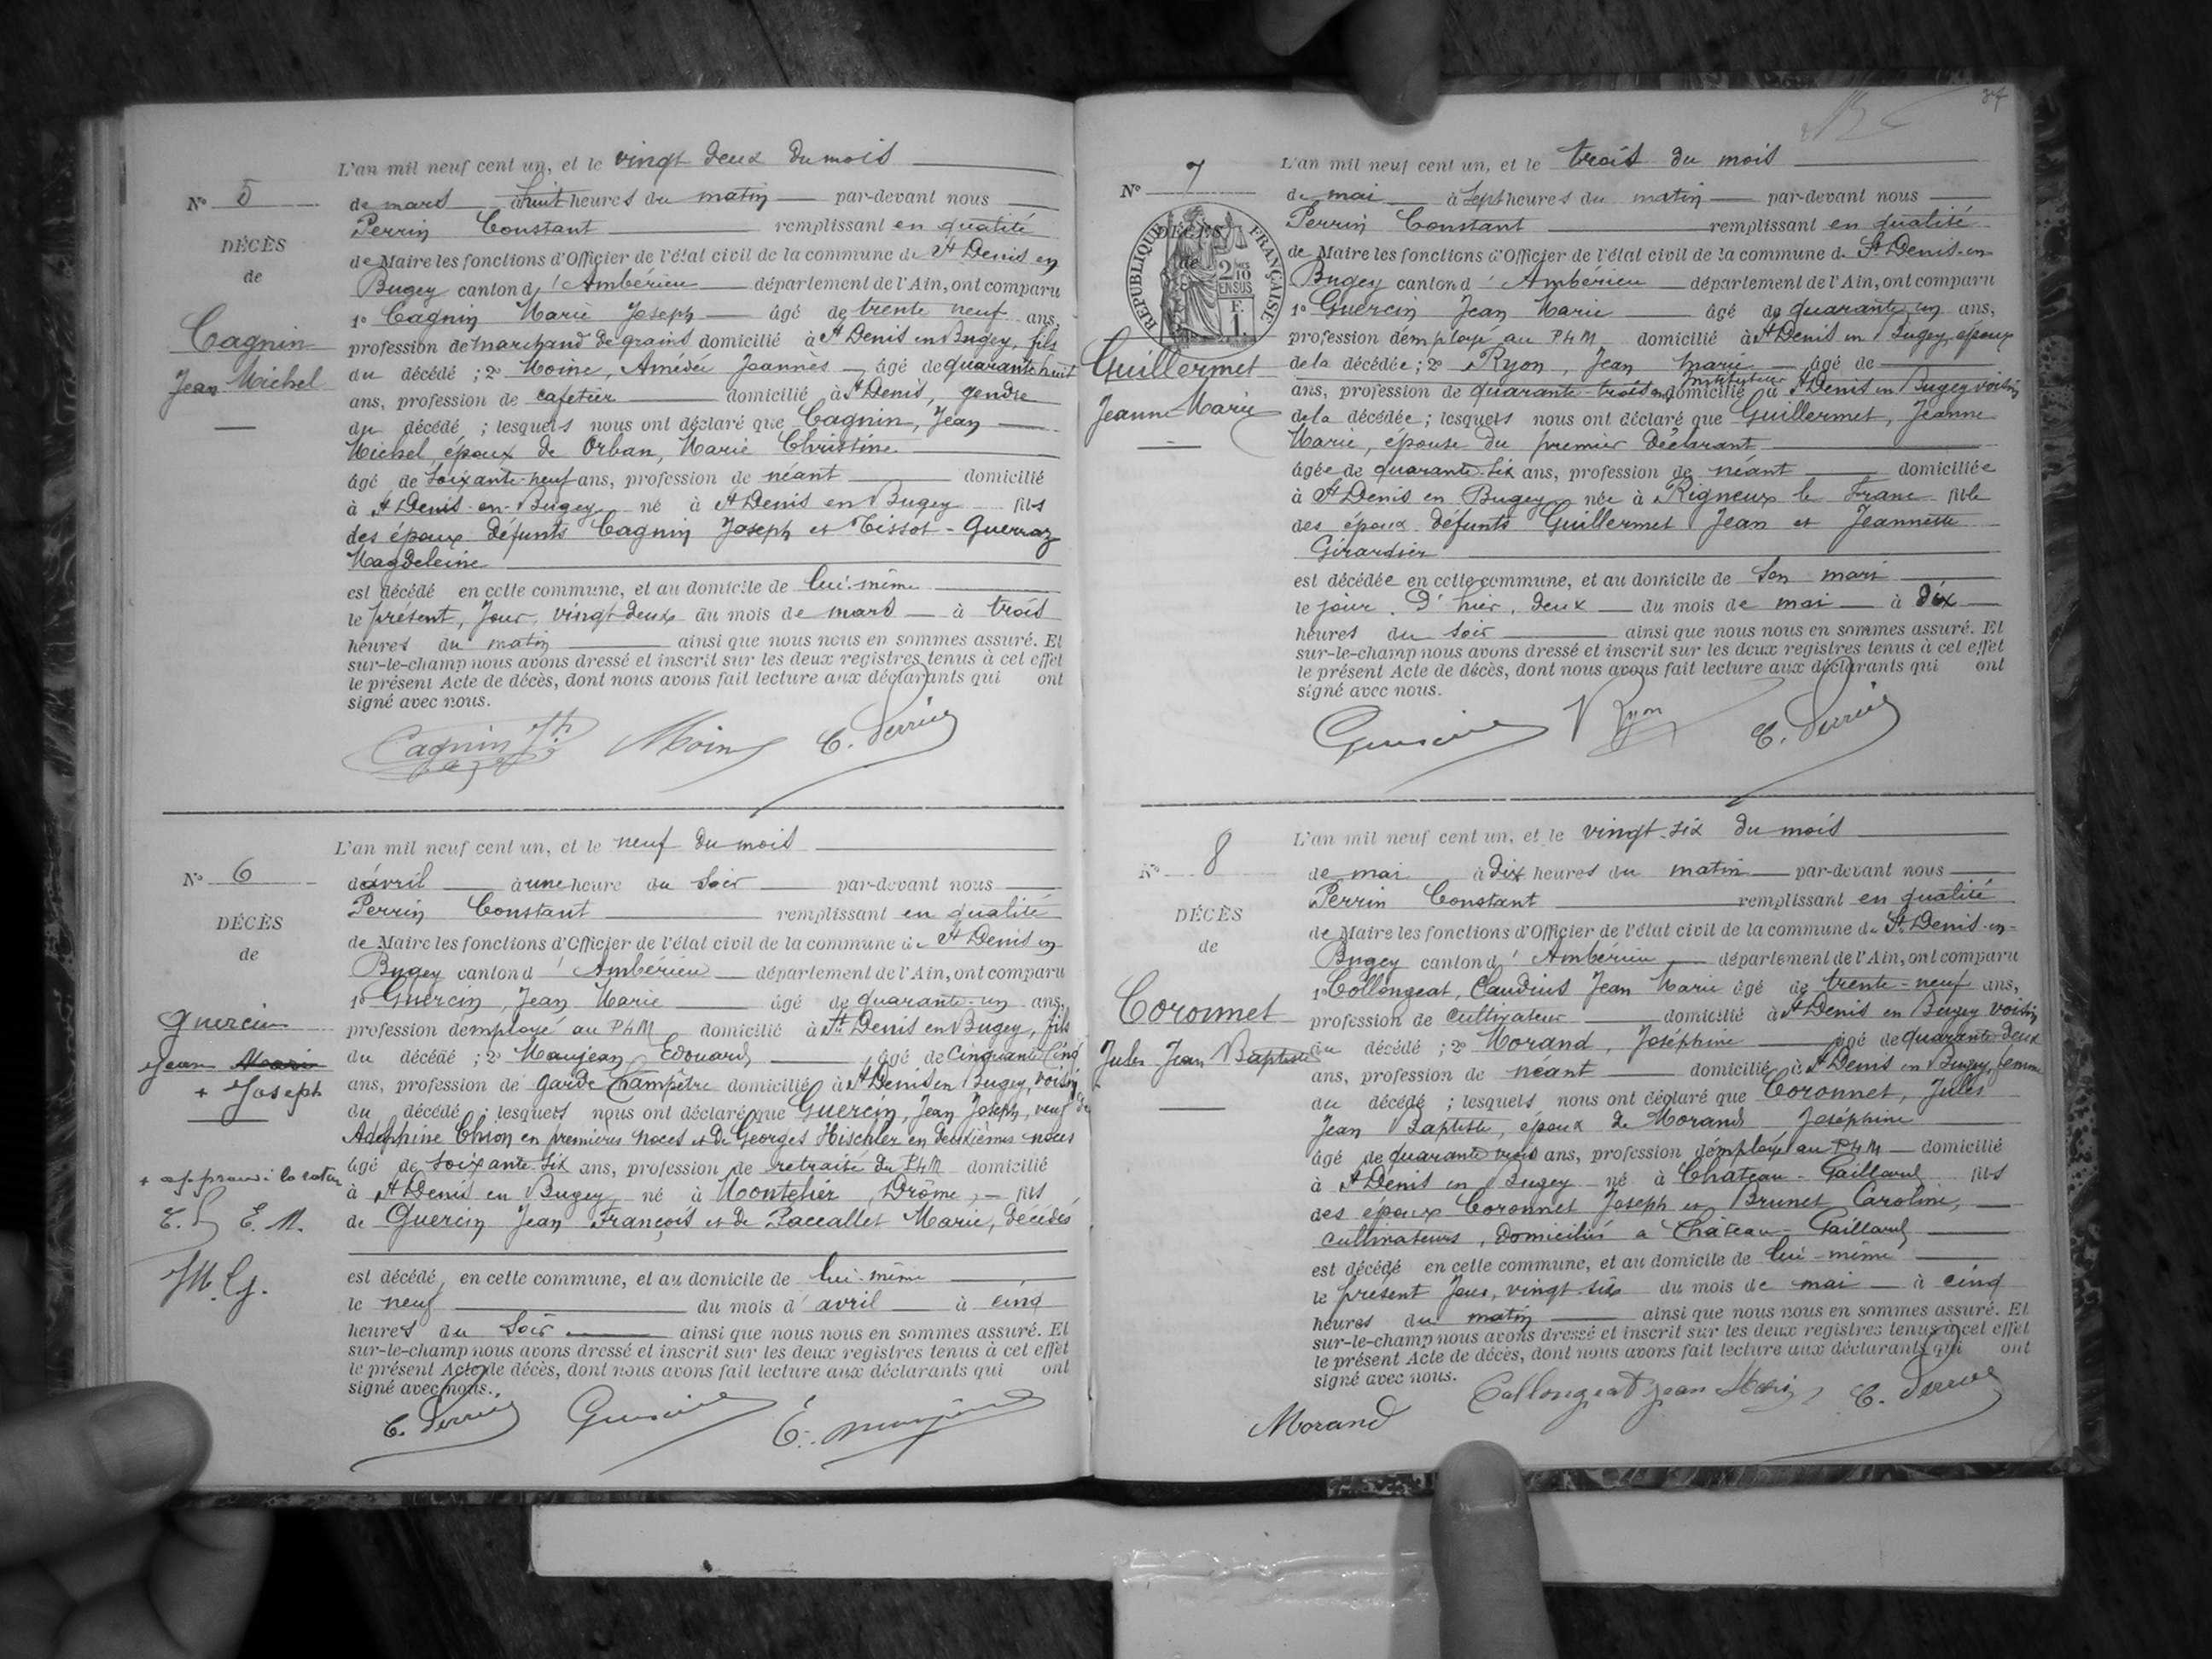 L'an mil neuf cent un, et le vingt deux du mois
N° 5
de mars à huit heures du matin par-devant nous
Perrin Constant remplissant en qualité
DÉCÈS
de Maire les fonctions d'Officier de l'état civil de la commune de St Denis en
de
Bugey canton d'Ambérieu département de l'Ain, ont comparu
1° Cagnin Marie Joseph âgé de trente neuf ans,
Cagnin
profession de marchand de grains domicilié à St Denis en Bugey, fils
Jean Michel
du décédé ; 2° Moine, Amédée Joannès âgé de quarante huit
ans, profession de cafetier domicilié à St Denis, gendre
du décédé ; lesquels nous ont déclaré que Cagnin, Jean
Michel, époux de Orban, Marie Christine
âgé de soixante-neuf ans, profession de néant domicilié
à St Denis-en-Bugey né à St Denis en Bugey fils
des époux défunts Cagnin Joseph et Tissot-Guerraz
Magdeleine
est décédé en cette commune, et au domicile de lui-même
le présent, jour, vingt-deux du mois de mars à trois
heures du matin ainsi que nous nous en sommes assuré. Et
sur-le-champ nous avons dressé et inscrit sur les deux registres tenus à cet effet
le présent Acte de décès, dont nous avons fait lecture aux déclarants qui ont
signé avec nous.
Cagnin Jh Moine C. Perrin
L'an mil neuf cent un, et le neuf du mois
N° 6
d'avril à une heure du soir par-devant nous
Perrin Constant remplissant en qualité
DÉCÈS
de Maire les fonctions d'Officier de l'état civil de la commune de St Denis en
de
Bugey canton d'Ambérieu département de l'Ain, ont comparu
1° Guercin, Jean Marie âgé de quarante-un ans,
Guercin
profession d'employé au PLM domicilié à St Denis en Bugey, fils
Jean Marie
du décédé ; 2° Maujean Edouard, âgé de cinquante cinq
+ Joseph
ans, profession de garde champêtre domicilié à St Denis en Bugey, voisin
du décédé ; lesquels nous ont déclaré que Guercin, Jean Joseph, veuf de
Adelphine Chion en premières noces et de Georges Hischler en deuxièmes noces
+ approuvé la rature
âgé de soixante-six ans, profession de retraité du PLM domicilié
à St Denis en Bugey né à Montelier, Drôme, fils
C. P. E. M.
de Guercin Jean François et de Paccallet Marie, décédés
J M. G.
est décédé, en cette commune, et au domicile de lui-même
le neuf du mois d'avril à cinq
heures du soir ainsi que nous nous en sommes assuré. Et
sur-le-champ nous avons dressé et inscrit sur les deux registres tenus à cet effet
le présent Acte de décès, dont nous avons fait lecture aux déclarants qui ont
signé avec nous.
C. Perrin Guercin E. Maujean
37
L'an mil neuf cent un, et le trois du mois
N° 7
de mai à sept heures du matin par-devant nous
Perrin Constant remplissant en qualité
DÉCÈS
de
RÉPUBLIQUE FRANÇAISE
2/10 EN SUS
1 F.
de Maire les fonctions d'Officier de l'état civil de la commune de St Denis-en
Bugey canton d'Ambérieu département de l'Ain, ont comparu
1° Guercin Jean Marie âgé de quarante un ans,
profession d'employé au PLM domicilié à St Denis en Bugey, époux
Guillermet
de la décédée ; 2° Ryon, Jean Marie âgé de
Jeanne Marie
ans, profession de quarante-trois ans instituteur domicilié à St Denis en Bugey voisin
de la décédée ; lesquels nous ont déclaré que Guillermet, Jeanne
Marie, épouse du premier déclarant
âgée de quarante-six ans, profession de néant domiciliée
à St Denis en Bugey née à Rigneux le Franc fille
des époux défunts Guillermet Jean et Jeannette
Girardier
est décédée en cette commune, et au domicile de son mari
le jour d'hier, deux du mois de mai à dix
heures du soir ainsi que nous nous en sommes assuré. Et
sur-le-champ nous avons dressé et inscrit sur les deux registres tenus à cet effet
le présent Acte de décès, dont nous avons fait lecture aux déclarants qui ont
signé avec nous.
Guercin Ryon C. Perrin
L'an mil neuf cent un, et le vingt-six du mois
N° 8
de mai à dix heures du matin par-devant nous
Perrin Constant remplissant en qualité
DÉCÈS
de Maire les fonctions d'Officier de l'état civil de la commune de St Denis-en-
de
Bugey canton d'Ambérieu département de l'Ain, ont comparu
1° Collongeat, Claudius Jean Marie âgé de trente-neuf ans,
Coronnet
profession de cultivateur domicilié à St Denis en Bugey voisin
Jules Jean Baptiste
du décédé ; 2° Morand, Joséphine âgé de quarante deux
ans, profession de néant domicilié à St Denis en Bugey, femme
du décédé ; lesquels nous ont déclaré que Coronnet, Jules
Jean Baptiste, époux de Morand Joséphine
âgé de quarante trois ans, profession d'employé au PLM domicilié
à St Denis en Bugey né à Château-Gaillard fils
des époux Coronnet Joseph et Brunet Caroline,
cultivateurs, domiciliés à Château-Gaillard
est décédé en cette commune, et au domicile de lui-même
le présent jour, vingt-six du mois de mai à cinq
heures du matin ainsi que nous nous en sommes assuré. Et
sur-le-champ nous avons dressé et inscrit sur les deux registres tenus à cet effet
le présent Acte de décès, dont nous avons fait lecture aux déclarants qui ont
signé avec nous.
Morand Collongeat Jean Marie C. Perrin